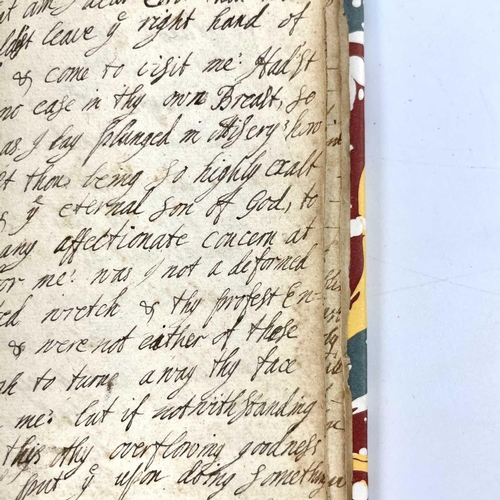 at am I dear Lord that
leave yͤ right hand of
& come to visit me: Had'st
no ease in thy own Breast, so
as I lay plunged in Misery: how
thou being so highly exalt
yͤ eternal Son of God, to
any affectionate concern at
for me: was I not a deformed
wretch & thy profest En-
& were not either of these
to turne away thy face
me: but if notwithstanding
this thy overflowing goodness
put yͤ upon doing something